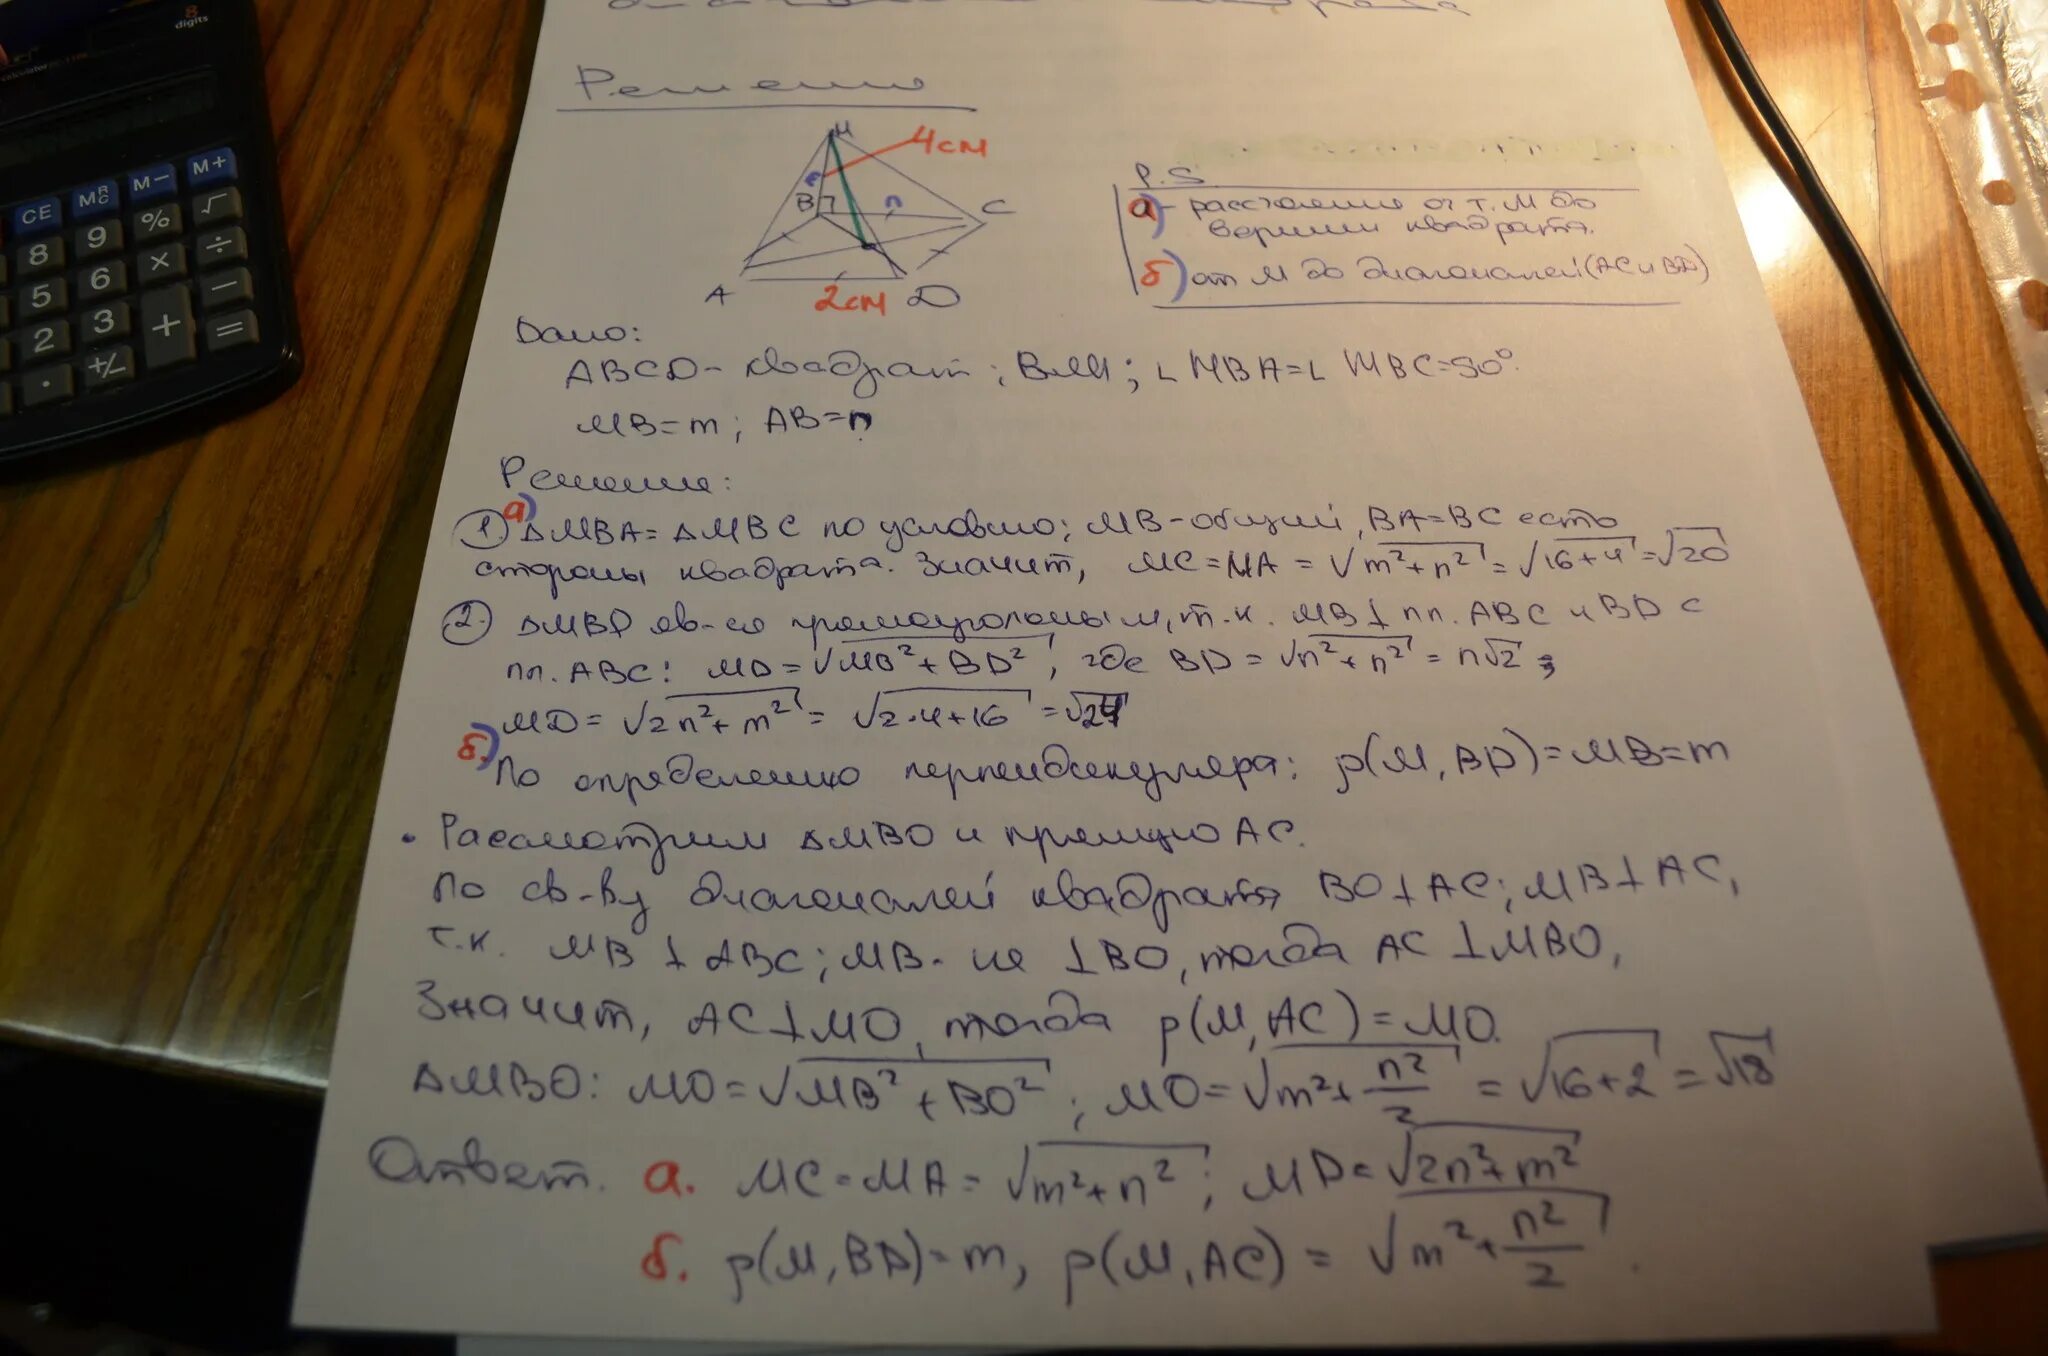 8
digits
M+
M−
CE
√
%
9
8
÷
×
6
5
−
+
3
2
=
+/-
·
Решение
M
4 см
m
n
B
C
A
2 см
D
P.S.
а) - расстояние от т. М до
вершин квадрата.
б) от М до диагоналей (AC и BD)
Дано:
ABCD - квадрат; BM; ∟ MBA = ∟ MBC = 90°.
MB = m; AB = n
Решение:
а)
1. △MBA = △MBC по условию; MB - общий, BA = BC есть
стороны квадрата. Значит, MC = MA = √m²+n² = √16+4 = √20
2. △MBD яв-ся прямоугольным, т.к. MB ⊥ пл. ABC и BD ⊂
пл. ABC: MD = √MB² + BD², где BD = √n²+n² = n√2;
MD = √2n²+m² = √2·4+16 = √24
б)
По определению перпендикуляра: ρ(M, BD) = MB = m
• Рассмотрим △MBO и прямую AC.
По св-ву диагоналей квадрата BO ⊥ AC; MB ⊥ AC,
т.к. MB ⊥ ABC; MB - не ⊥ BO, тогда AC ⊥ MBO,
Значит, AC ⊥ MO, тогда ρ(M, AC) = MO.
△MBO: MO = √MB² + BO²; MO = √m² + n²/2 = √16+2 = √18
Ответ. а. MC = MA = √m²+n²; MD = √2n²+m²
б. ρ(M, BD) = m, ρ(M, AC) = √m² + n²/2.